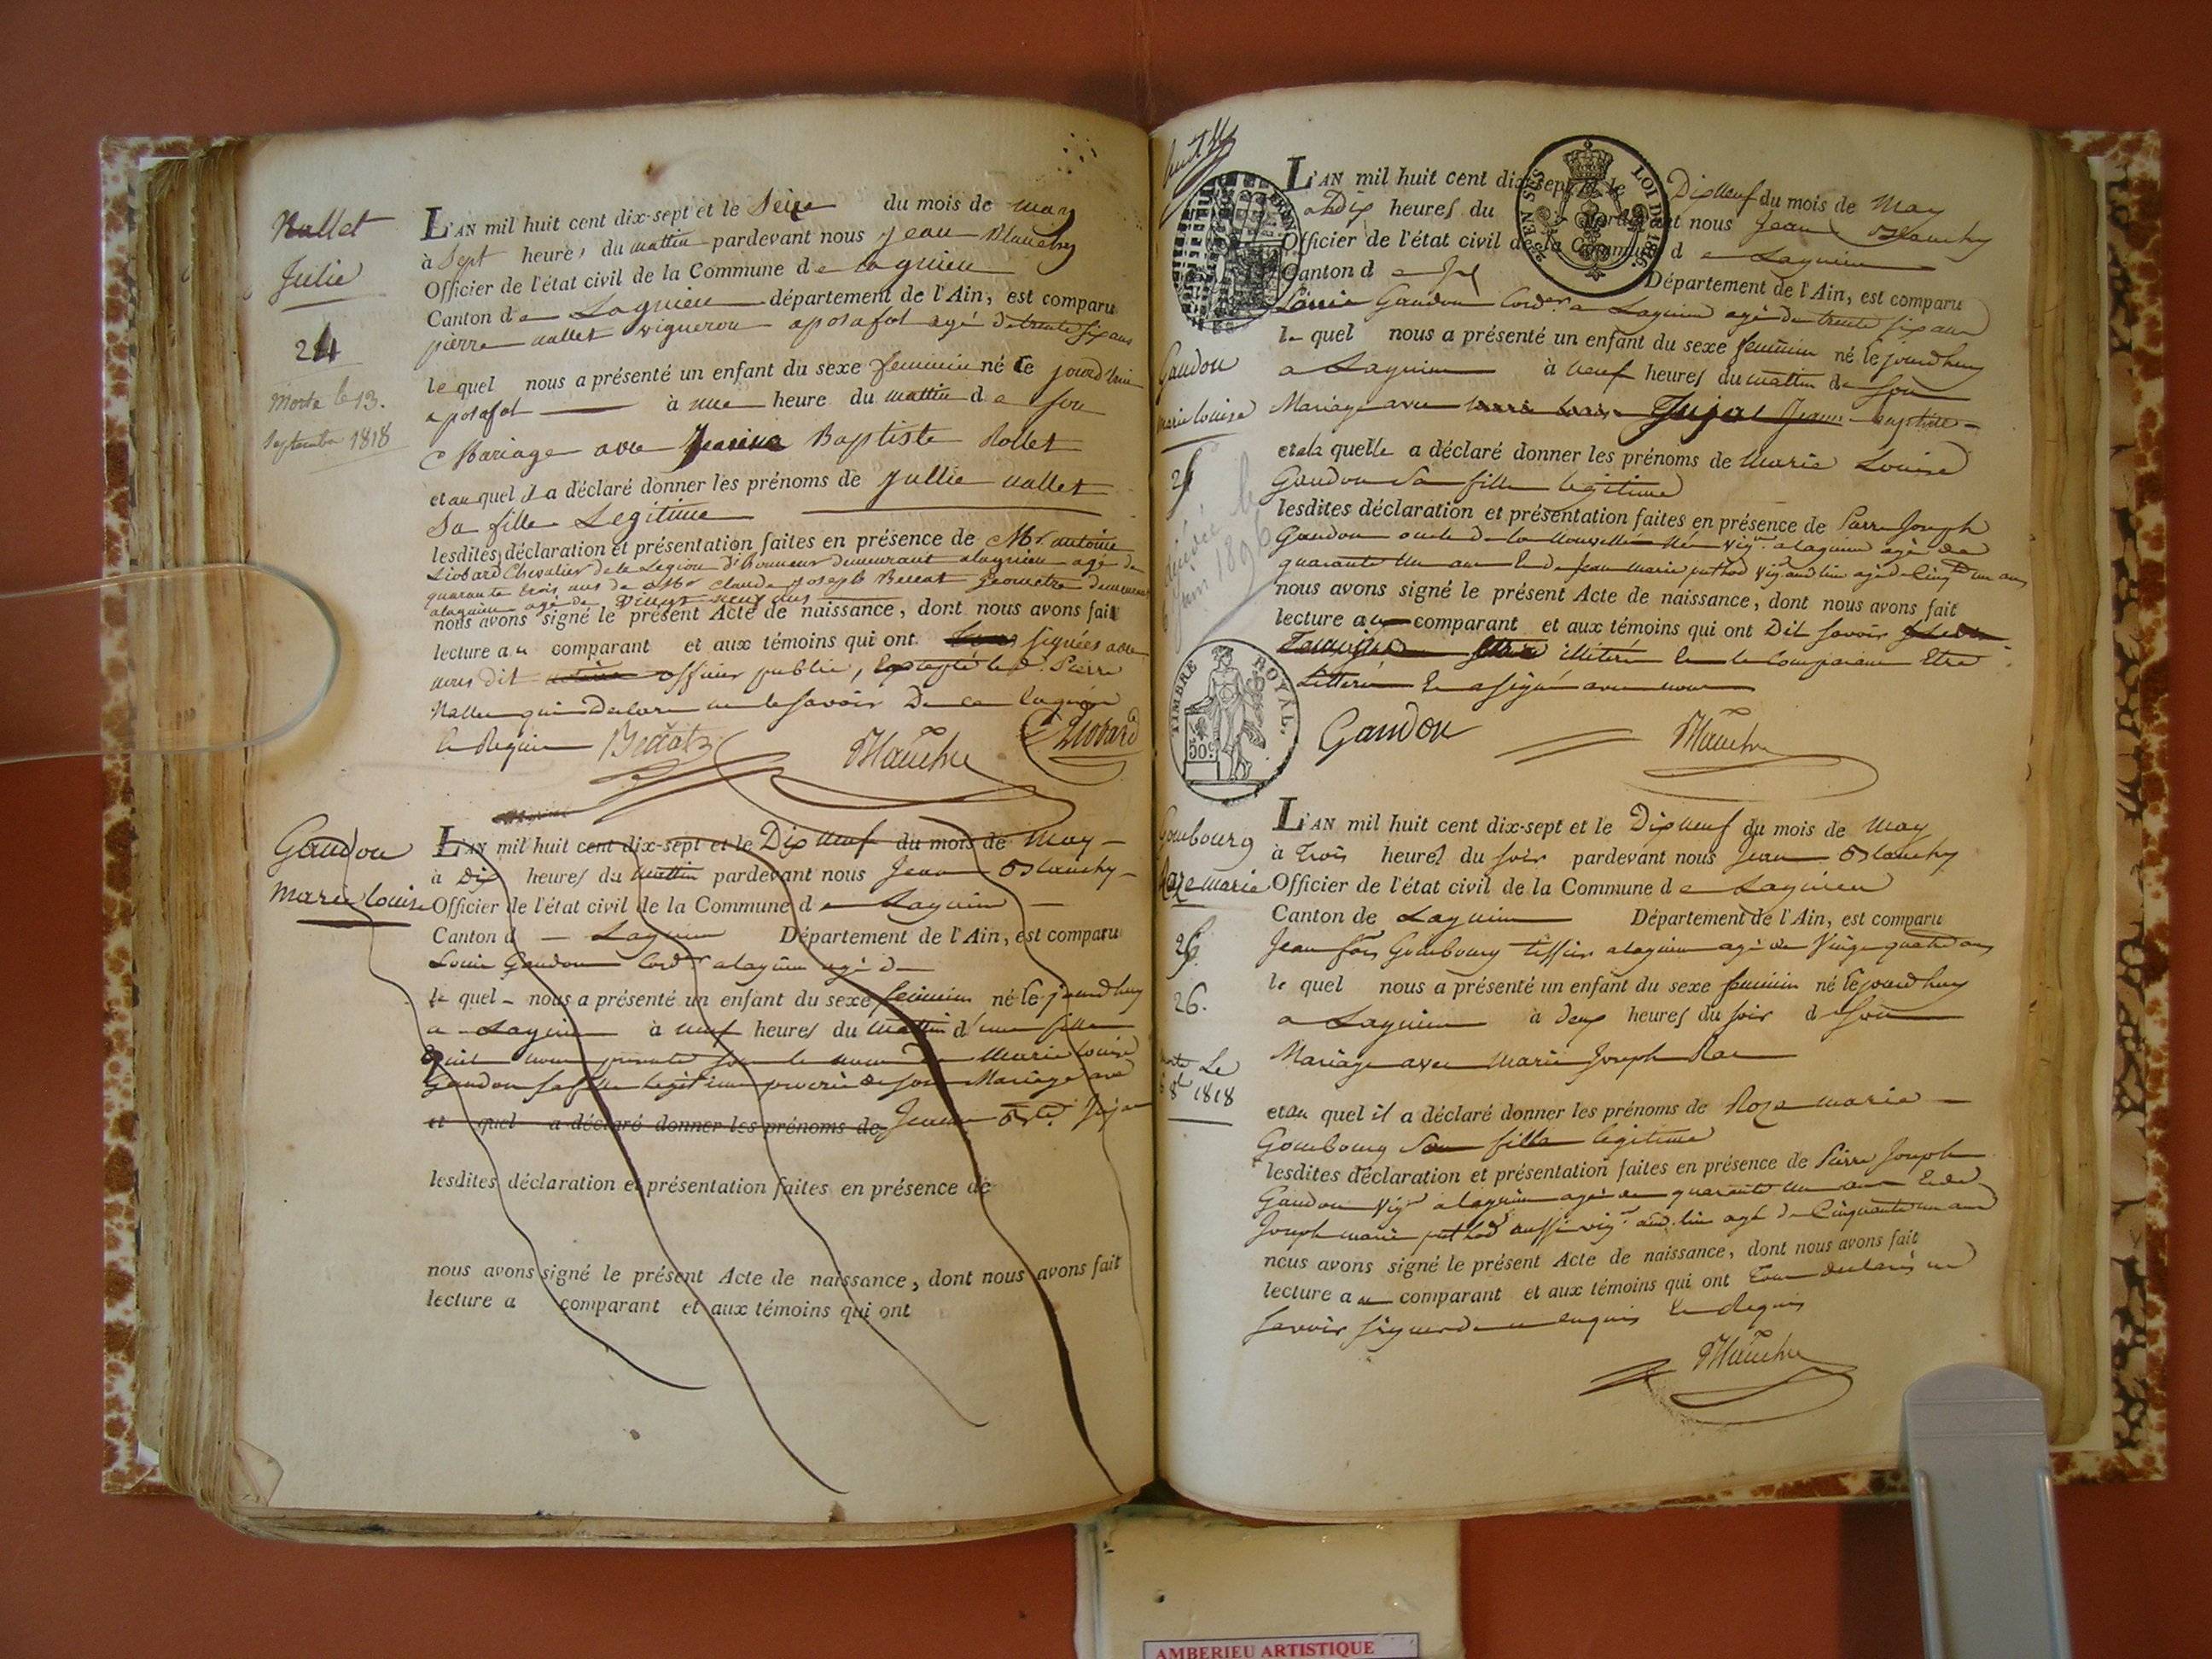 Nallet
Julie
24
Morte le 13.
Septembre 1818
L'AN mil huit cent dix-sept et le Seize du mois de may
à Sept heures du mattin pardevant nous Jean Blanchy
Officier de l'état civil de la Commune de lagnieu
Canton de Lagnieu département de l'Ain, est comparu
pierre nallet vigneron a posafol agé de trente six ans
le quel nous a présenté un enfant du sexe feminin né le jourd'hui
a posafol à une heure du mattin de son
Mariage avec Baptiste Rollet
et au quel il a déclaré donner les prénoms de Jullie nallet
Sa fille Legitime
lesdites déclaration et présentation faites en présence de Mr. antoine
Liobard Chevalier de la Legion d'honneur demeurant a lagnieu agé de
quarante trois ans de Mr claude joseph Geometre demeurant
a lagnieu agé de
nous avons signé le présent Acte de naissance, dont nous avons fait
lecture au comparant et aux témoins qui ont signées avec
nous dit officier public, Excepté le d. Pierre
Nallet qui Declare ne le savoir De ce
et Requis
Blanchy
Liobard
Gaudon
Marie louise
L'AN mil huit cent dix-sept et le Dix neuf du mois de May
à Dix heures du mattin pardevant nous Jean Blanchy
Officier de l'état civil de la Commune de Lagnieu
Canton d Lagnieu Département de l'Ain, est comparu
Louis Gaudon Cordr a lagnieu agé de
le quel nous a présenté un enfant du sexe feminin né le jourdhuy
a Lagnieu à neuf heures du mattin d'une fille
quil nous presente sous le nom de Marie Louise
Gaudon sa fille legitime de son Mariage avec
et quel a déclaré donner les prénoms de
lesdites déclaration et présentation faites en présence de
nous avons signé le présent Acte de naissance, dont nous avons fait
lecture a comparant et aux témoins qui ont
L'AN mil huit cent dix-sept et le Dix neuf du mois de May
à Dix heures du pardevant nous Jean Blanchy
Officier de l'état civil de la Commune de Lagnieu
Canton de Département de l'Ain, est comparu
LOI DE 1816.
Louis Gaudon Cordr a Lagnieu agé de trente six ans
le quel nous a présenté un enfant du sexe feminin né le jourdhuy
Gaudon
a Lagnieu à neuf heures du mattin de son
marie louise
Mariage avec Jujat Jeanne baptiste
et a la quelle a déclaré donner les prénoms de Marie Louise
Gaudon Sa fille legitime
lesdites déclaration et présentation faites en présence de Pierre Joseph
Gaudon oncle de la nouvelle Née vign a lagnieu agé de
quarante un ans Et de Jean marie puthod
nous avons signé le présent Acte de naissance, dont nous avons fait
lecture au comparant et aux témoins qui ont Dit savoir
illiteré et le Comparant Etre
Litteré Et a signé avec nous
TIMBRE ROYAL.
50c
Gaudon
Blanchy
Gombourg
Roze Marie
26.
L'AN mil huit cent dix-sept et le Dix neuf du mois de May
à trois heures du soir pardevant nous Jean Blanchy
Officier de l'état civil de la Commune de Lagnieu
Canton de Lagnieu Département de l'Ain, est comparu
Jean fois Gombourg tissier a lagnieu agé de Vingt quatre ans
le quel nous a présenté un enfant du sexe feminin né le jourdhuy
a Lagnieu à deux heures du soir de son
Mariage avec Marie Joseph
morte Le
8bre 1818
et au quel il a déclaré donner les prénoms de Roze marie
Gombourg Sa fille legitime
lesdites déclaration et présentation faites en présence de Pierre Joseph
Gaudon vign a lagnieu agé de quarante un ans Et de
Joseph marie puthod aussi vign aud. lieu agé de Cinquante un ans
nous avons signé le présent Acte de naissance, dont nous avons fait
lecture au comparant et aux témoins qui ont tous declarés ne
savoir signer de ce enquis et Requis
Blanchy
AMBERIEU ARTISTIQUE